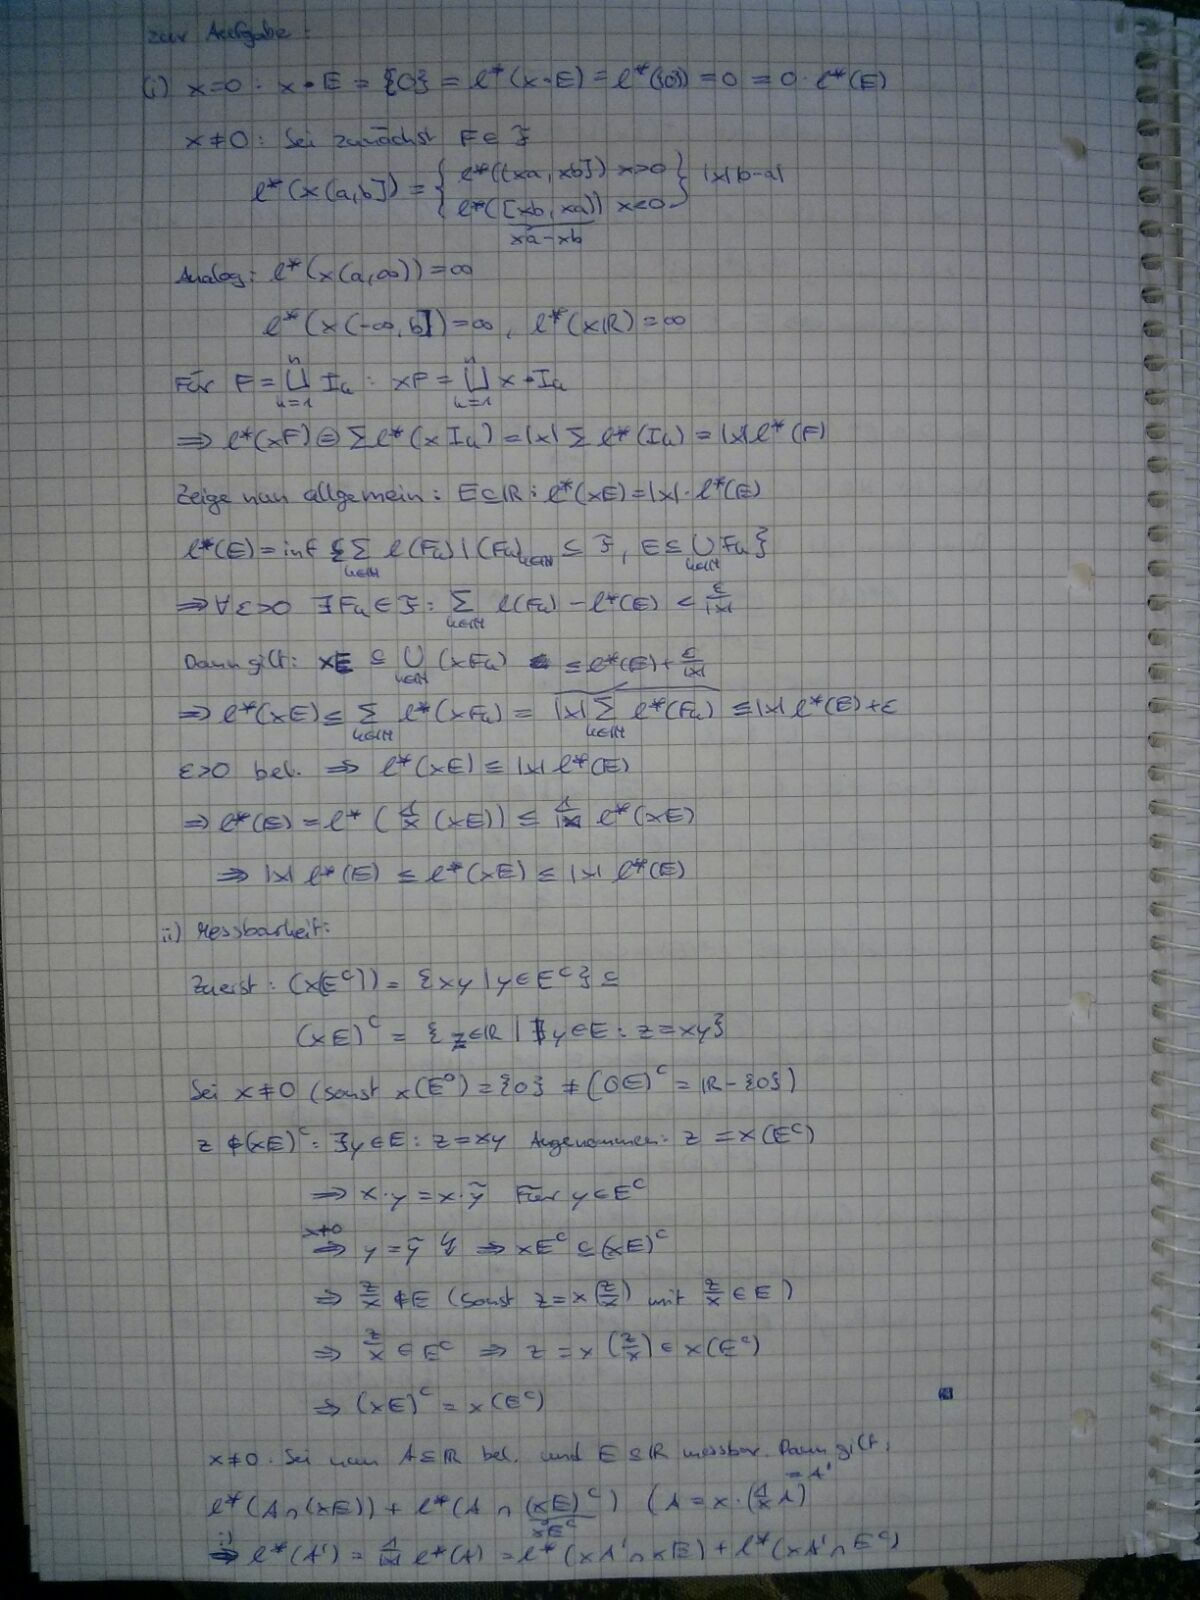 zur Aufgabe:
(i) x=0: x·E = {0} = l*(x·E) = l*({0}) = 0 = 0·l*(E)
x≠0: Sei zunächst F∈𝓕
l*(x(a,b]) = { l*((xa,xb]) x>0 } |x| |b-a|
l*([xb,xa)) x<0
xa-xb
Analog: l*(x(a,∞))=∞
l*(x(-∞,b])=∞, l*(xℝ)=∞
Für F = ⨆_{k=1}^n I_k : xF = ⨆_{k=1}^n x·I_k
⟹ l*(xF) ⊜ Σ l*(x I_k) = |x| Σ l*(I_k) = |x| l*(F)
Zeige nun allgemein: E⊆ℝ: l*(xE)=|x|·l*(E)
l*(E) = inf {Σ_{k∈ℕ} l(F_k) | (F_k)_{k∈ℕ} ⊆ 𝓕, E⊆ ∪_{k∈ℕ} F_k}
⟹ ∀ε>0 ∃F_k∈𝓕: Σ_{k∈ℕ} l(F_k) - l*(E) < ε/|x|
Dann gilt: xE ⊆ ∪_{k∈ℕ} (xF_k) ≤ l*(E)+ε/|x|
⟹ l*(xE) ≤ Σ_{k∈ℕ} l*(xF_k) = |x| Σ_{k∈ℕ} l*(F_k) ≤ |x| l*(E)+ε
ε>0 bel. ⟹ l*(xE) ≤ |x| l*(E)
⟹ l*(E) = l*(1/x (xE)) ≤ 1/|x| l*(xE)
⟹ |x| l*(E) ≤ l*(xE) ≤ |x| l*(E)
ii) Messbarkeit:
Zuerst: (x(E^c)) = {xy | y∈E^c} ⊆
(xE)^c = {z∈ℝ | ∄y∈E: z=xy}
Sei x≠0 (sonst x(E^c)={0} ≠ (0E)^c = ℝ-{0})
z∉(xE)^c: ∃y∈E: z=xy Angenommen: z = x(E^c)
⟹ x·y = x·ỹ Für y∈E^c
x≠0 ⟹ y=ỹ ↯ ⟹ xE^c ⊆ (xE)^c
⟹ z/x ∉E (sonst z=x(z/x) mit z/x ∈E)
⟹ z/x ∈E^c ⟹ z = x(z/x) ∈ x(E^c)
⟹ (xE)^c = x(E^c)
x≠0. Sei nun A⊆ℝ bel. und E⊆ℝ messbar. Dann gilt:
l*(A∩(xE)) + l*(A∩(xE)^c) (A = x·(1/x A)
=A'
xE^c
i) ⟹ l*(A') = 1/|x| l*(A) = l*(xA'∩xE) + l*(xA'∩E^c)